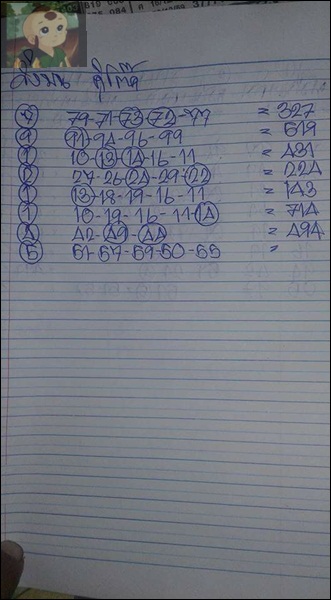 ⑦ 79-71-73-72-77 = 327
⑨ 91-94-96-99 = 619
① 10-13-14-16-11 = 431
② 27-26-24-29-22 = 224
① 13-18-19-16-11 = 143
① 10-19-16-11-14 = 714
④ 42-49-44 = 494
⑥ 61-67-69-60-66 =